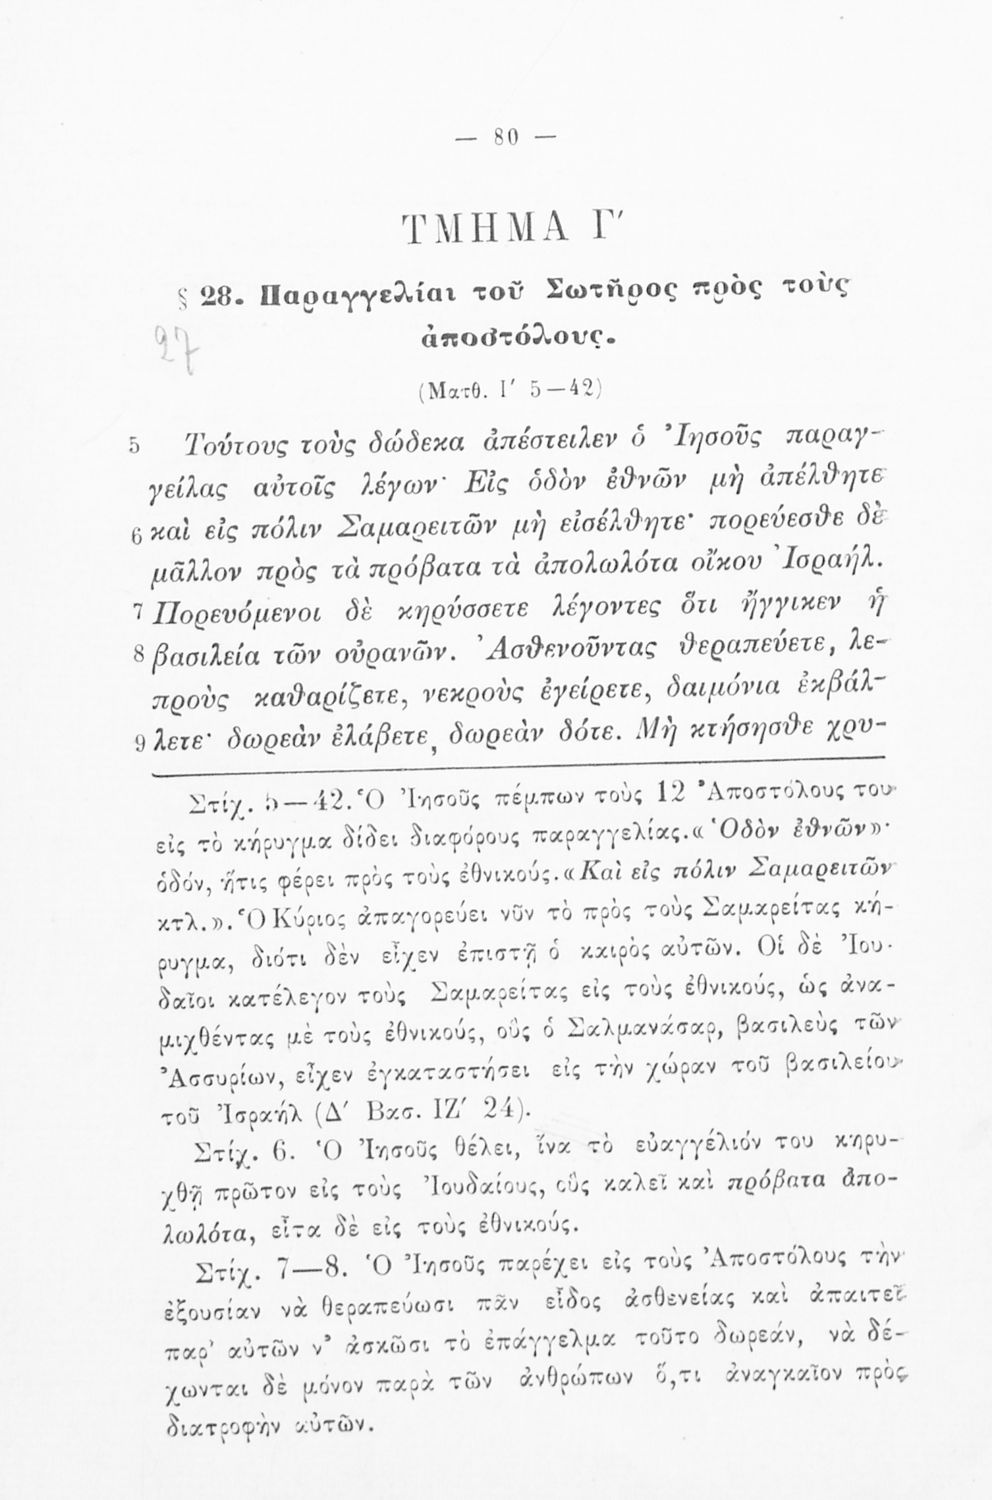 — 80 —
ΤΜΗΜΑ Γ′
§ 28. Παραγγελίαι τοῦ Σωτῆρος πρὸς τοὺς
27
ἀποστόλους.
(Ματθ. Ι′ 5—42)
5 Τούτους τοὺς δώδεκα ἀπέστειλεν ὁ Ἰησοῦς παραγ-
γείλας αὐτοῖς λέγων· Εἰς ὁδὸν ἐθνῶν μὴ ἀπέλθητε
6 καὶ εἰς πόλιν Σαμαρειτῶν μὴ εἰσέλθητε· πορεύεσθε δὲ
μᾶλλον πρὸς τὰ πρόβατα τὰ ἀπολωλότα οἴκου Ἰσραήλ.
7 Πορευόμενοι δὲ κηρύσσετε λέγοντες ὅτι ἤγγικεν ἡ
8 βασιλεία τῶν οὐρανῶν. Ἀσθενοῦντας θεραπεύετε, λε-
προὺς καθαρίζετε, νεκροὺς ἐγείρετε, δαιμόνια ἐκβάλ-
9 λετε· δωρεὰν ἐλάβετε, δωρεὰν δότε. Μὴ κτήσησθε χρυ-
Στίχ. 5—42. Ὁ Ἰησοῦς πέμπων τοὺς 12 Ἀποστόλους του
εἰς τὸ κήρυγμα δίδει διαφόρους παραγγελίας. «Ὁδὸν ἐθνῶν»·
ὁδόν, ἥτις φέρει πρὸς τοὺς ἐθνικούς. «Καὶ εἰς πόλιν Σαμαρειτῶν
κτλ.». Ὁ Κύριος ἀπαγορεύει νῦν τὸ πρὸς τοὺς Σαμαρείτας κή-
ρυγμα, διότι δὲν εἶχεν ἐπιστῆ ὁ καιρὸς αὐτῶν. Οἱ δὲ Ἰου-
δαῖοι κατέλεγον τοὺς Σαμαρείτας εἰς τοὺς ἐθνικούς, ὡς ἀνα-
μιχθέντας μὲ τοὺς ἐθνικούς, οὓς ὁ Σαλμανάσαρ, βασιλεὺς τῶν
Ἀσσυρίων, εἶχεν ἐγκαταστήσει εἰς τὴν χώραν τοῦ βασιλείου
τοῦ Ἰσραὴλ (Δ′ Βασ. ΙΖ′ 24).
Στίχ. 6. Ὁ Ἰησοῦς θέλει, ἵνα τὸ εὐαγγέλιόν του κηρυ-
χθῇ πρῶτον εἰς τοὺς Ἰουδαίους, οὓς καλεῖ καὶ πρόβατα ἀπο-
λωλότα, εἶτα δὲ εἰς τοὺς ἐθνικούς.
Στίχ. 7—8. Ὁ Ἰησοῦς παρέχει εἰς τοὺς Ἀποστόλους τὴν
ἐξουσίαν νὰ θεραπεύωσι πᾶν εἶδος ἀσθενείας καὶ ἀπαιτεῖ
παρ’ αὐτῶν ν’ ἀσκῶσι τὸ ἐπάγγελμα τοῦτο δωρεάν, νὰ δέ-
χωνται δὲ μόνον παρὰ τῶν ἀνθρώπων ὅ,τι ἀναγκαῖον πρὸς
διατροφὴν αὐτῶν.